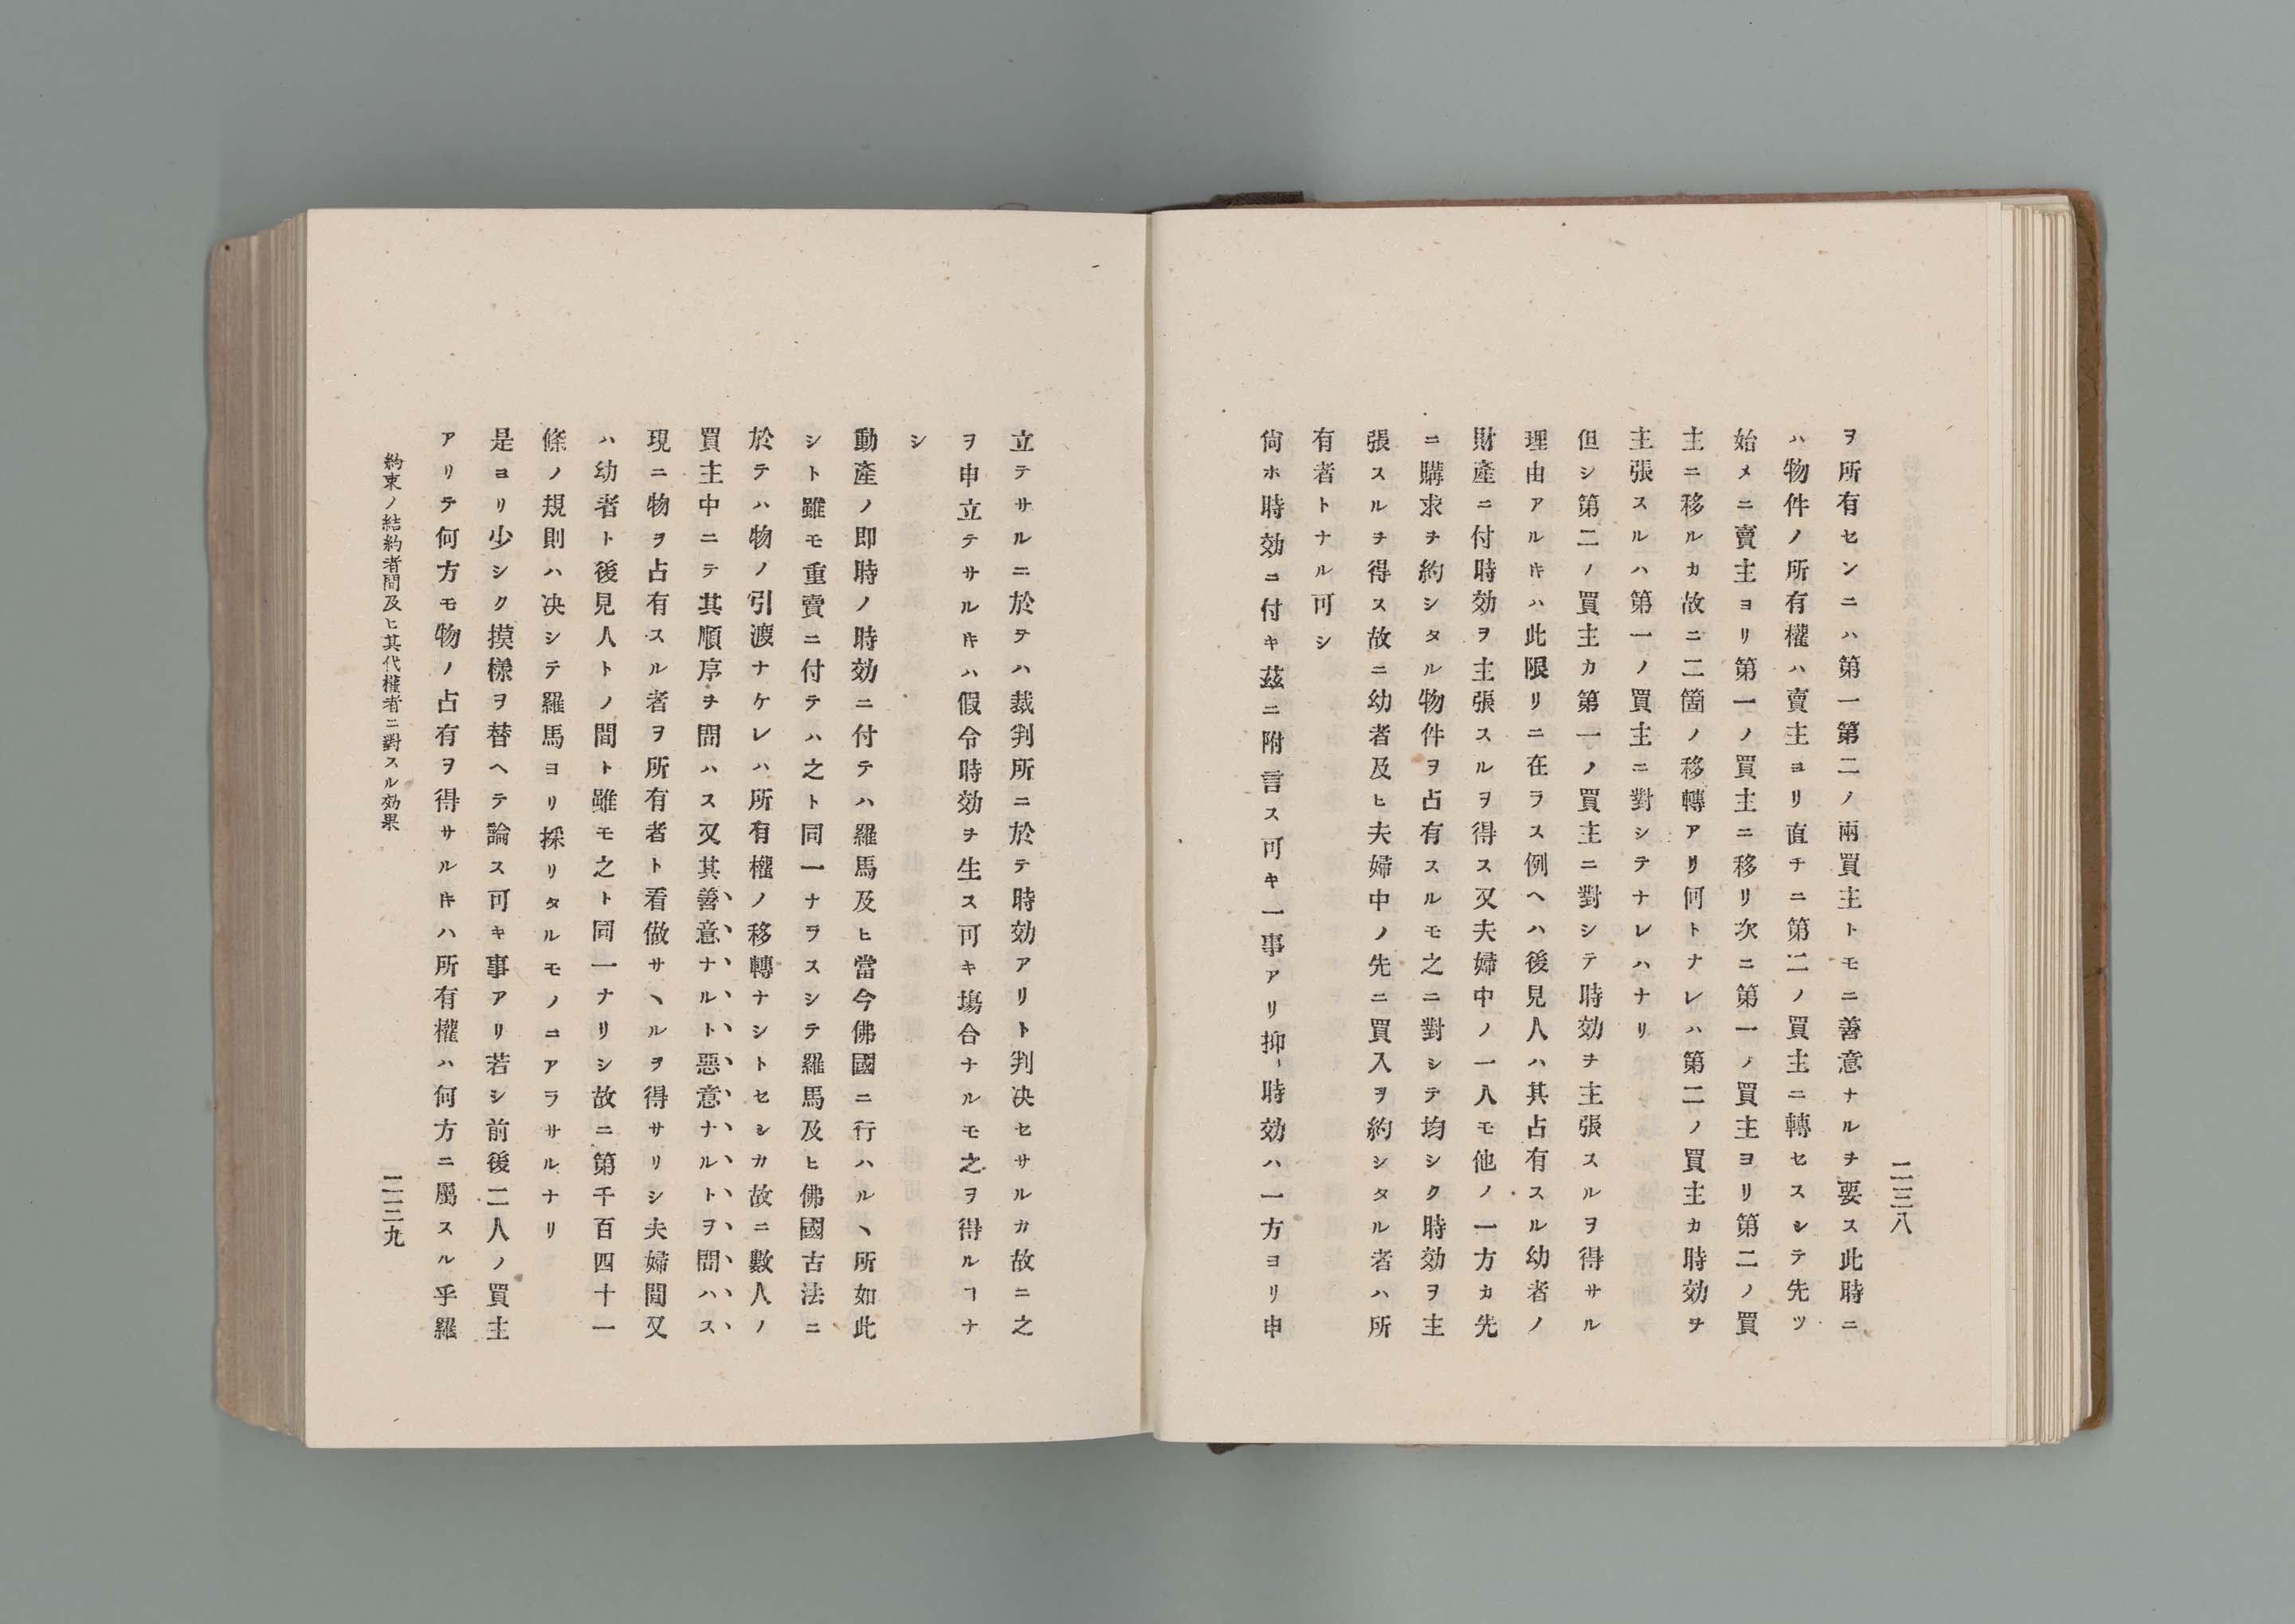 二三八
ヲ所有センニハ第一第二ノ兩買主トモニ善意ナルヲ要ス此時ニ
ハ物件ノ所有權ハ賣主ヨリ直チニ第二ノ買主ニ轉セスシテ先ツ
始メニ賣主ヨリ第一ノ買主ニ移リ次ニ第一ノ買主ヨリ第二ノ買
主ニ移ルカ故ニ二箇ノ移轉アリ何トナレハ第二ノ買主カ時効ヲ
主張スルハ第一ノ買主ニ對シテナレハナリ
但シ第二ノ買主カ第一ノ買主ニ對シテ時効ヲ主張スルヲ得サル
理由アルヿキハ此限リニ在ラス例ヘハ後見人ハ其占有スル幼者ノ
財產ニ付時効ヲ主張スルヲ得ス又夫婦中ノ一人モ他ノ一方カ先
ニ購求ヲ約シタル物件ヲ占有スルモ之ニ對シテ均シク時効ヲ主
張スルヲ得ス故ニ幼者及ヒ夫婦中ノ先ニ買入ヲ約シタル者ハ所
有者トナル可シ
尙ホ時効ニ付キ茲ニ附言ス可キ一事アリ抑〻時効ハ一方ヨリ申
立テサルニ於テハ裁判所ニ於テ時効アリト判决セサルカ故ニ之
ヲ申立テサル𪜈ハ假令時効ヲ生ス可キ塲合ナルモ之ヲ得ルヿナ
シ
動產ノ即時ノ時効ニ付テハ羅馬及ヒ當今佛國ニ行ハルヽ所如此
シト雖モ重賣ニ付テハ之ト同一ナラスシテ羅馬及ヒ佛國古法ニ
於テハ物ノ引渡ナケレハ所有權ノ移轉ナシトセシカ故ニ數人ノ
買主中ニテ其順序ヲ問ハス又其善意ナルト惡意ナルトヲ問ハス
現ニ物ヲ占有スル者ヲ所有者ト看做サヽルヲ得サリシ夫婦間又
ハ幼者ト後見人トノ間ト雖モ之ト同一ナリシ故ニ第千百四十一
條ノ規則ハ决シテ羅馬ヨリ採リタルモノニアラサルナリ
是ヨリ少シク摸樣ヲ替ヘテ論ス可キ事アリ若シ前後二人ノ買主
アリテ何方モ物ノ占有ヲ得サルㇳキハ所有權ハ何方ニ屬スル乎羅
約束ノ結約者間及ヒ其代權者ニ對スル効果
二三九